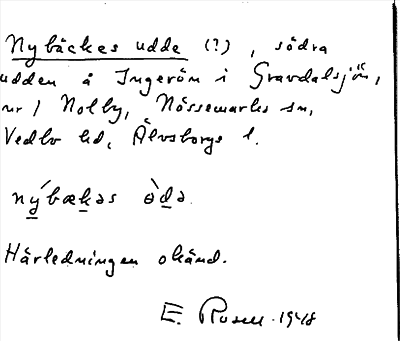 Nybäckes udde (?), södra
udden å Ingerön i Gravdalsjön,
nr 1 Nolby, Nössemarks sn,
Vedbo hd, Älvsborgs l.
nýbækas òda
Härledningen okänd.
E. Rosell. 1948